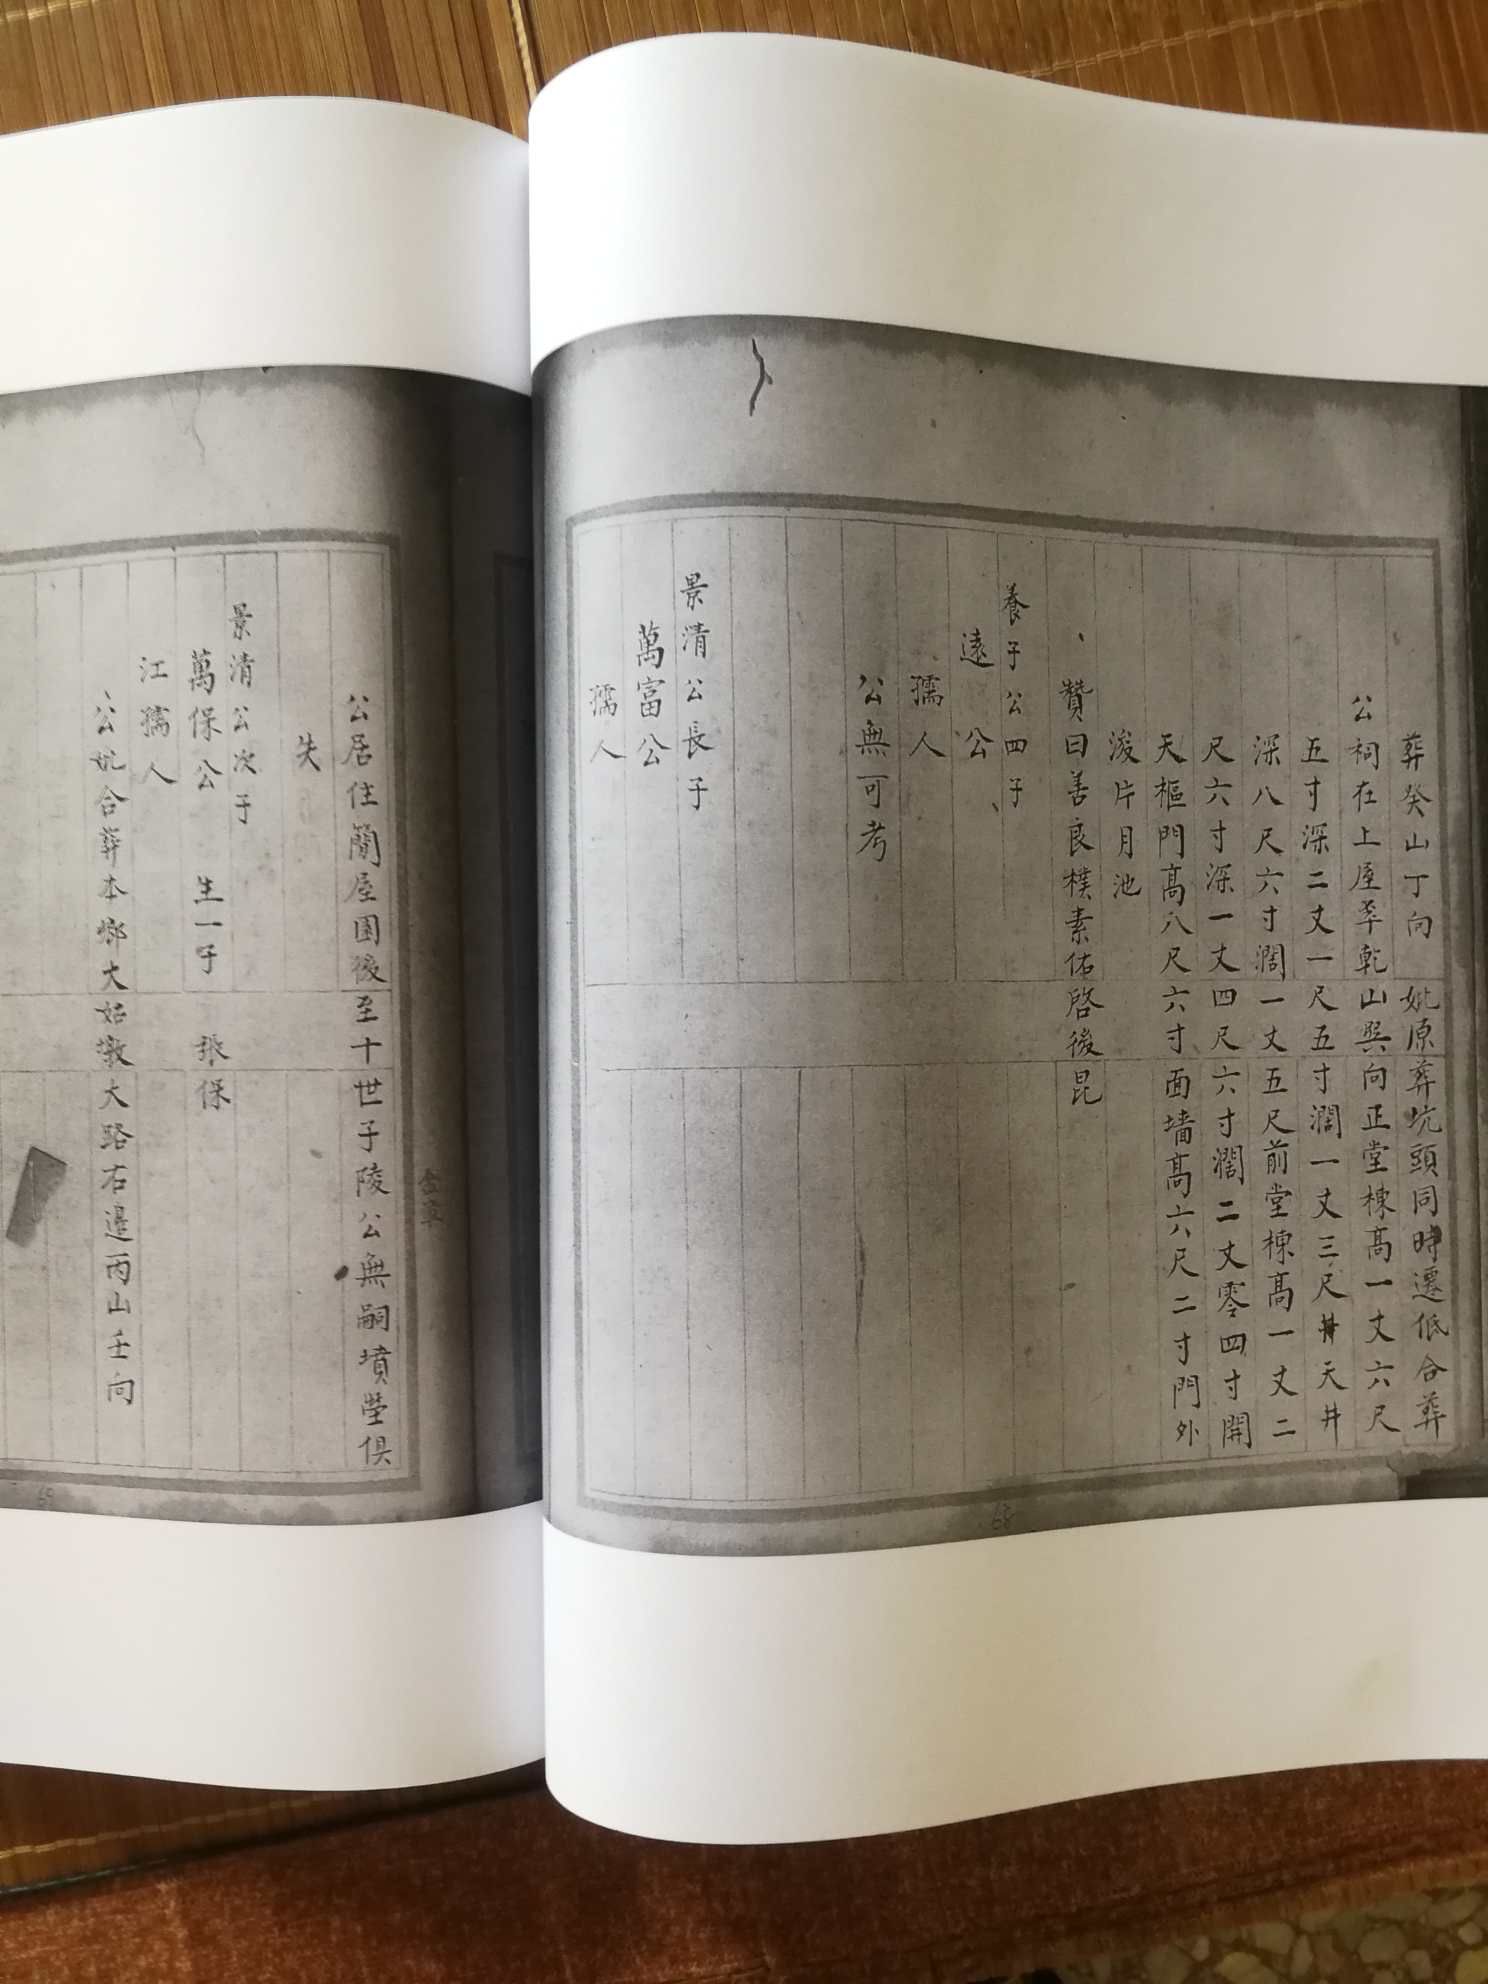 葬癸山丁向　妣原葬坑頭同時遷低合葬
公祠在上屋卒乾山巽向正堂棟高一丈六尺
五寸深二丈一尺五寸濶一丈三尺天井
深八尺六寸濶一丈五尺前堂棟高一丈二
尺六寸深一丈四尺六寸濶二丈零四寸開
天樞門高八尺六寸面墻高六尺二寸門外
浚片月池
贊曰善良樸素佑啓後昆
養子公四子
遠公
孺人
公無可考
景清公長子
萬富公
孺人
公居住簡屋園後至十世子陵公無嗣墳塋俱
失
景清公次子
萬保公　生一子　張保
江孺人
公妣合葬本鄉大姑墩大路右邊丙山壬向
68
69